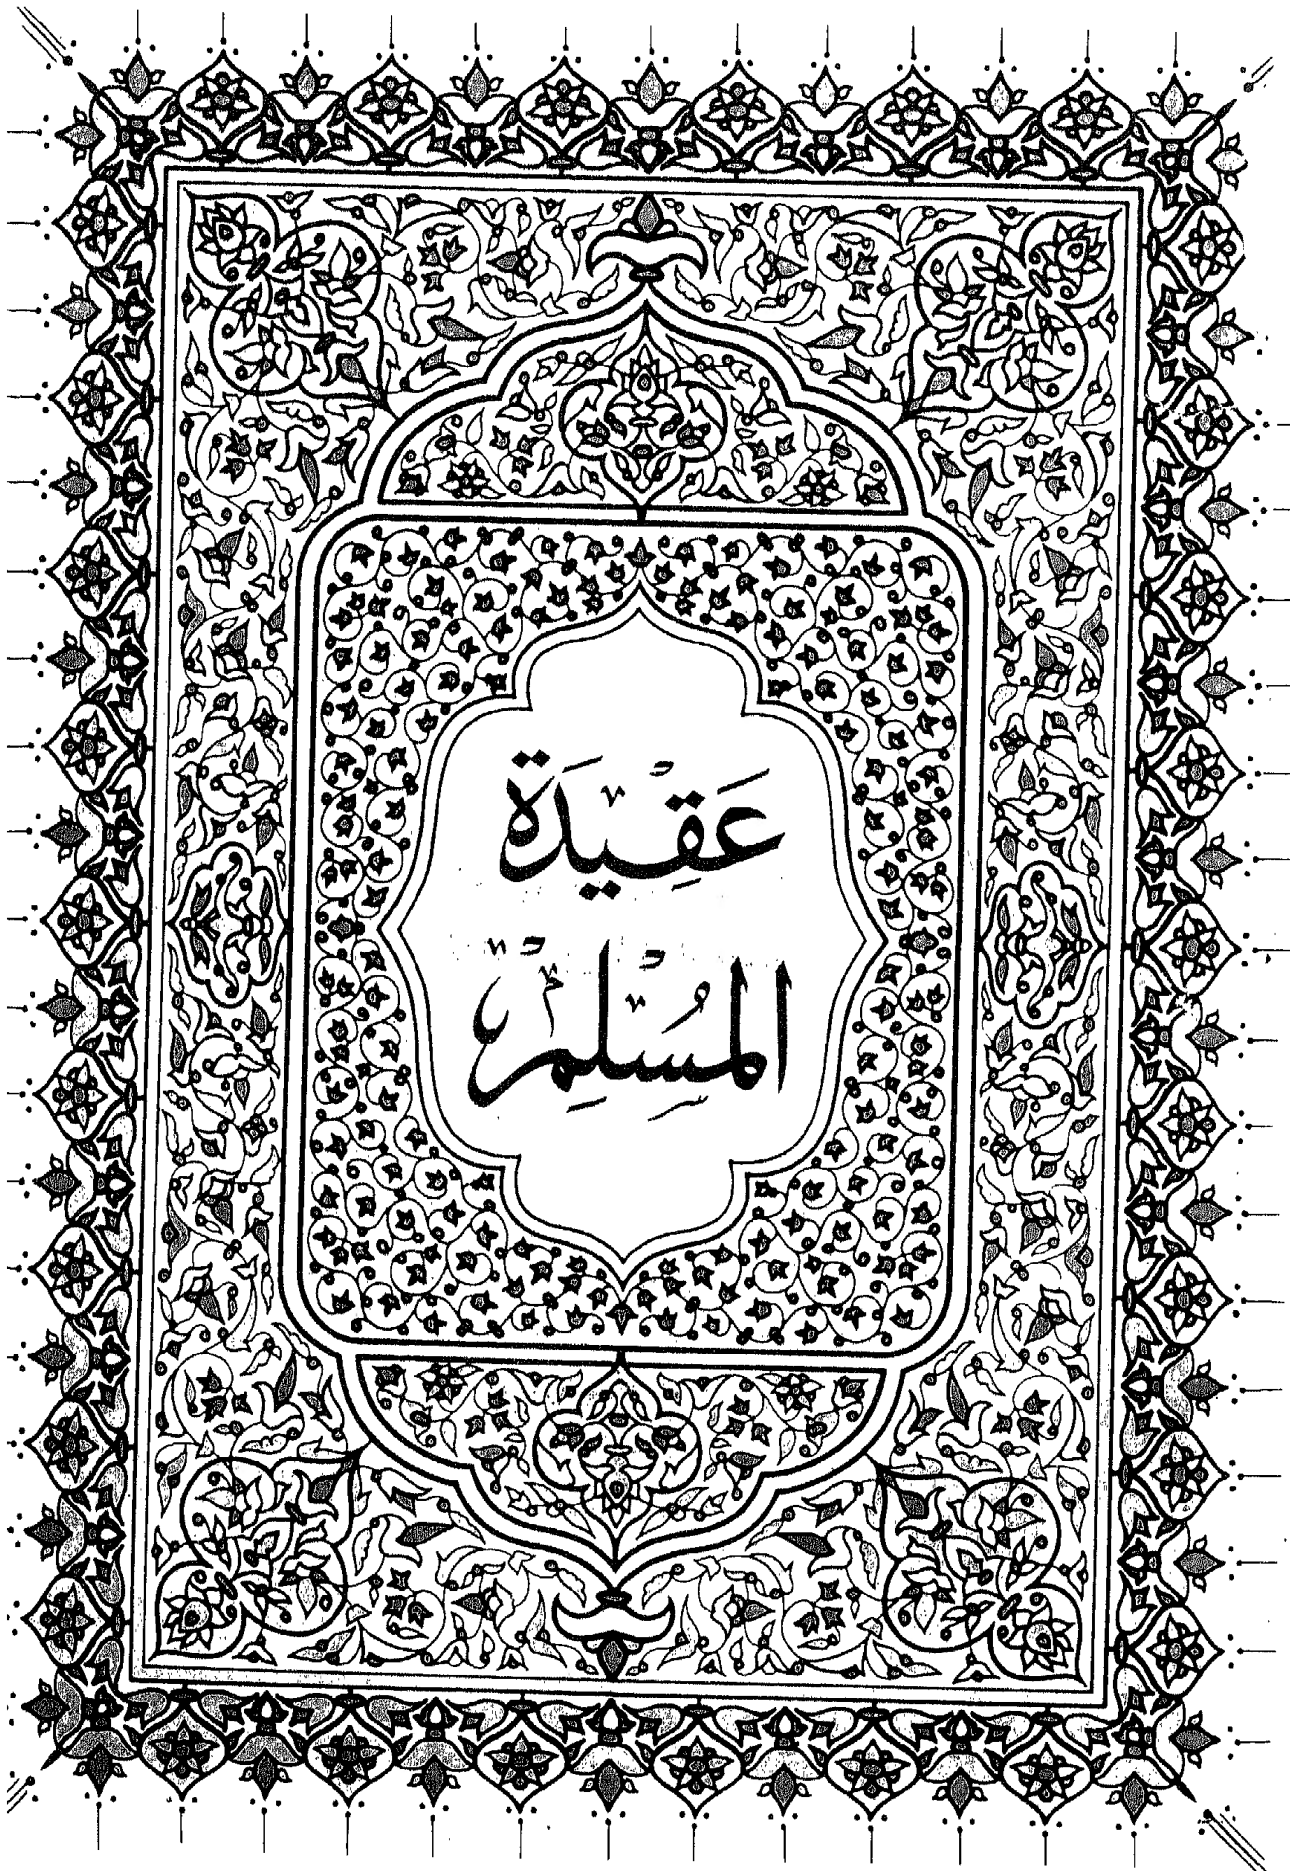 عَقِيْدَة
المُسْلِمِ